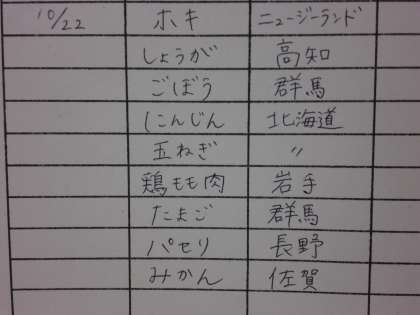 10/22 ホキ ニュージーランド
しょうが 高知
ごぼう 群馬
にんじん 北海道
玉ねぎ 〃
鶏もも肉 岩手
たまご 群馬
パセリ 長野
みかん 佐賀